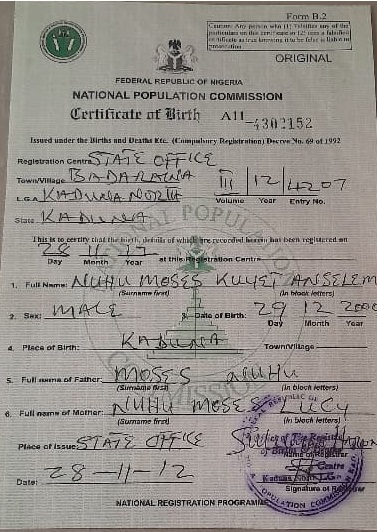 Form B.2
Caution: Any person who (1) falsifies any of the
particulars on this certificate or (2) uses a falsified
certificate as true knowing it to be false is liable to
prosecution
ORIGINAL
FEDERAL REPUBLIC OF NIGERIA
NATIONAL POPULATION COMMISSION
Certificate of Birth A11 4302152
Issued under the Births and Deaths Etc. (Compulsory Registration) Decree No. 69 of 1992
Registration Centre STATE OFFICE
Town/Village BADARAWA
III 12 4207
L.G.A KADUNA NORTH
Volume Year Entry No.
State KADUNA
This is to certify that the birth, details of which are recorded herein has been registered on
28 11 12 at this Registration Centre
Day Month Year
1. Full Name: NUHU MOSES KUYET ANSELEM
(Surname first) (in block letters)
2. Sex: MALE 3. Date of Birth: 29 12 2000
Day Month Year
4. Place of Birth: KADUNA Town/Village
5. Full name of Father: MOSES NUHU
(Surname first) (in block letters)
6. Full name of Mother: NUHU MOSES LUCY
(Surname first) (in block letters)
Place of Issue: STATE OFFICE
Name of Registrar
Date: 28-11-12
Signature of Registrar
NATIONAL REGISTRATION PROGRAMME